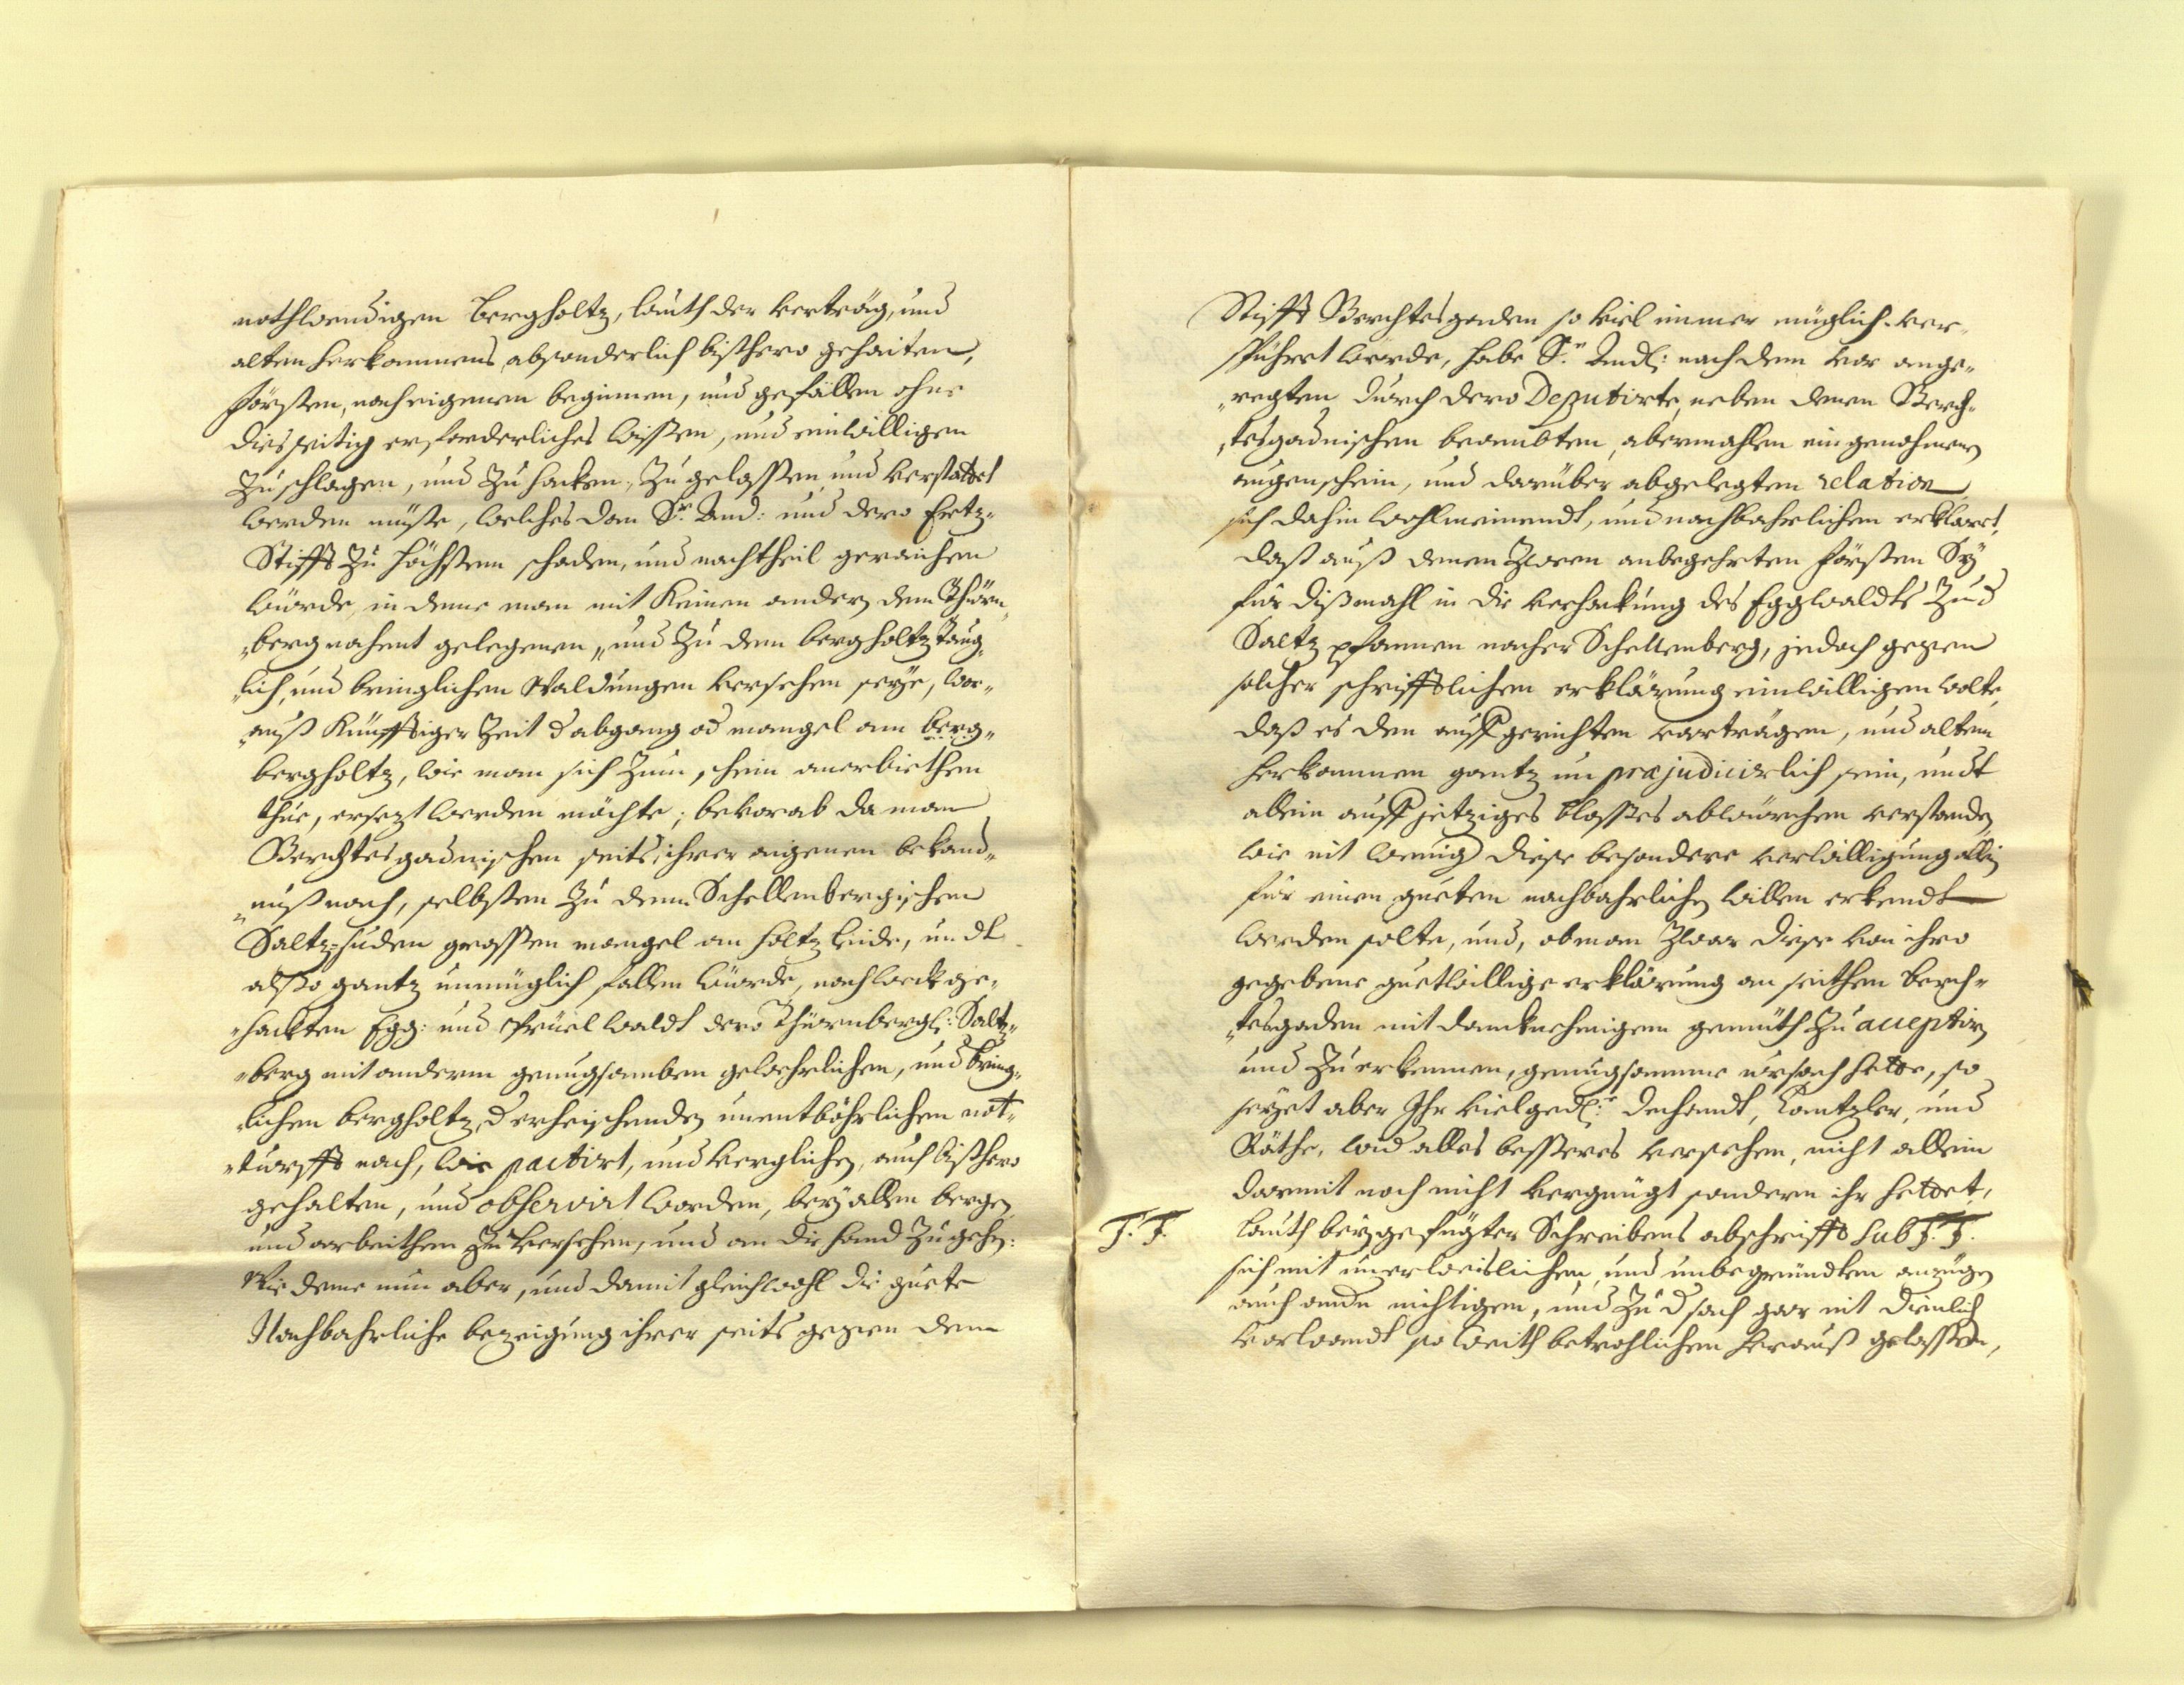 nothwendigen bergholtz, lauth der verträg, und
alten herkommens absonderlich bißhero gehaiten,
försten, nach eigenen beginnen, und gefallen ohne
diesseitig erforderliches wissen, und einwilligen
zu schlagen, und zu hacken, zugelassen und verstattet
werden müste, welches dan Sr. Gnd: und dero Ertz-
Stifft zu höchstem schaden, und nachtheil geraichen
würde, in deme man mit keinen andern dem Thürn„
„berg nahent gelegenen, und zu dem bergholtz taug„
„lich, und bringlichen Waldungen versehen seye, wor„
„auß künfftiger Zeit d abgang od mangel am berg„
bergholtz, wie man sich zum schein anerbiethen
thue, ersezt werden möchte; bevorab da man
Berchtesgadnischen seits, ihrer aigenen bekand„
„nuß nach, selbsten zu denn Schellenbergischen
Saltz-suden grossen mangel an holtz leide, undt
also gantz unmüglich fallen würde, nach weckge„
„hackten Egg: und Prüel waldt dero Thürnbergl: Saltz„
„berg mit anderm genugsamben gewehrlichen, und bring„
„lichen bergholtz, d erheischenden unentböhrlichen not„
„turfft nach, wie pactirt, und verglichen, auch bißhero
gehalten, und observirt worden, bey allen bergen
und arbeithen zu versehen, und an die hand zu gehen:
Wie deme nun aber, und damit gleichwohl die guete
Nachbahrliche bezeigung ihrer seits gegen dem
Stifft Berchtesgaden so viel immer müglich ver„
spührt werde, habe Sr. Gndl: nach dem vor ange„
„regten durch dero Deputirte, neben denen Berch„
„tesgadnischen beambten, abermahlen eingenohmenen
augenschein, und darüber abgelegten relation
sich dahin wohlmeinendt, und nachbahrlichen erklaert,
daß auß denen zween anbegehrten försten Sy
für dißmahl in die verhackung des Eggwaldts zud
Saltz pfannen nacher Schellenberg, jedoch gegen
solcher schrifftlichen erklärung einwilligen wolte,
daß es den auffgerichten verträgen, und altem
herkommen gantz un præjudicirlich sein, undt
allein auff jetziges blosses abwürchen verstanden,
wie nit wenig diese besondere verwilligung allein
für einen gueten nachbahrlichen willen erkendt
werden solte, und, ob man zwar diese von ihro
gegebene guetwillige erklärung an seithen Berch„
„tesgaden mit dancknehmigem gemüth zu acceptirn
und zu erkennen, genugsamme ursach hette, so
seyet aber Ihr vielgedl:r Dechandt, Cantzler, und
Räthe, wid alles besseres versehen, nicht allein
darmit noch nicht vergnügt sondern ihr hettet,
F. F. lauth beygefügter Schreibens abschrifft sub F. F.
sich mit unerweislichen, und unbegründten anzügen
auch andn nichtigen, und zu d sach gar nit dienlich
vorwandt so weith betrohlichen herauß gelassen,